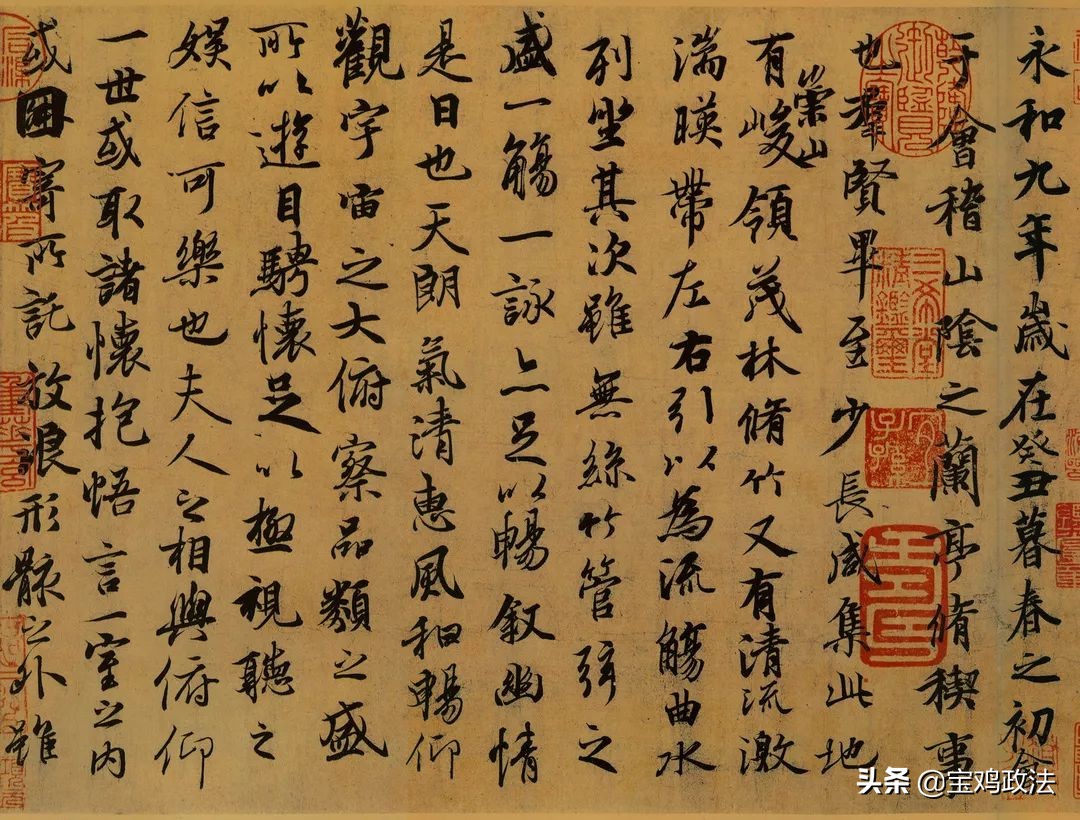 永和九年歲在癸丑暮春之初會
于會稽山陰之蘭亭脩稧事
也羣賢畢至少長咸集此地
有崇山峻領茂林脩竹又有清流激
湍暎帶左右引以為流觴曲水
列坐其次雖無絲竹管弦之
盛一觴一詠亦足以暢叙幽情
是日也天朗氣清惠風和暢仰
觀宇宙之大俯察品類之盛
所以遊目騁懷足以極視聽之
娛信可樂也夫人之相與俯仰
一世或取諸懷抱悟言一室之内
或因寄所託放浪形骸之外雖
乾隆鑑賞
三希堂精鑑璽
宜子孫
头条 @宝鸡政法